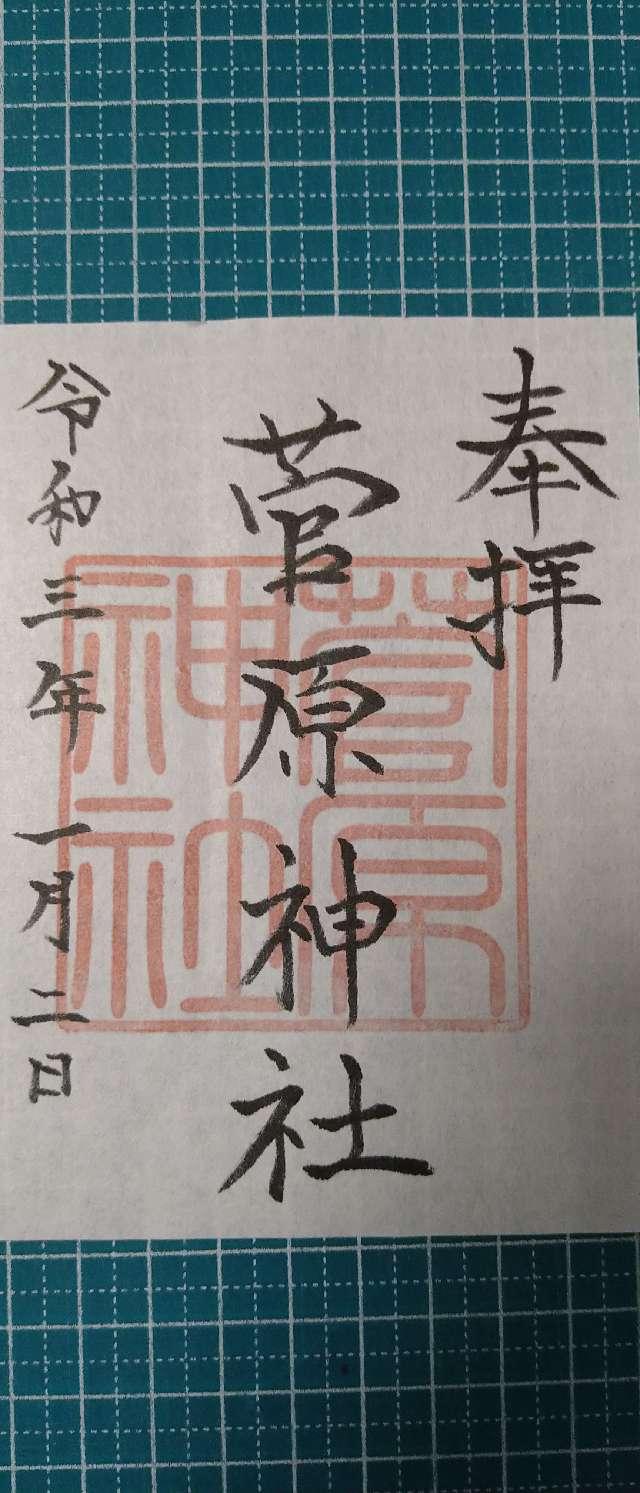 奉拝
菅原神社
令和三年一月二日
菅原神社